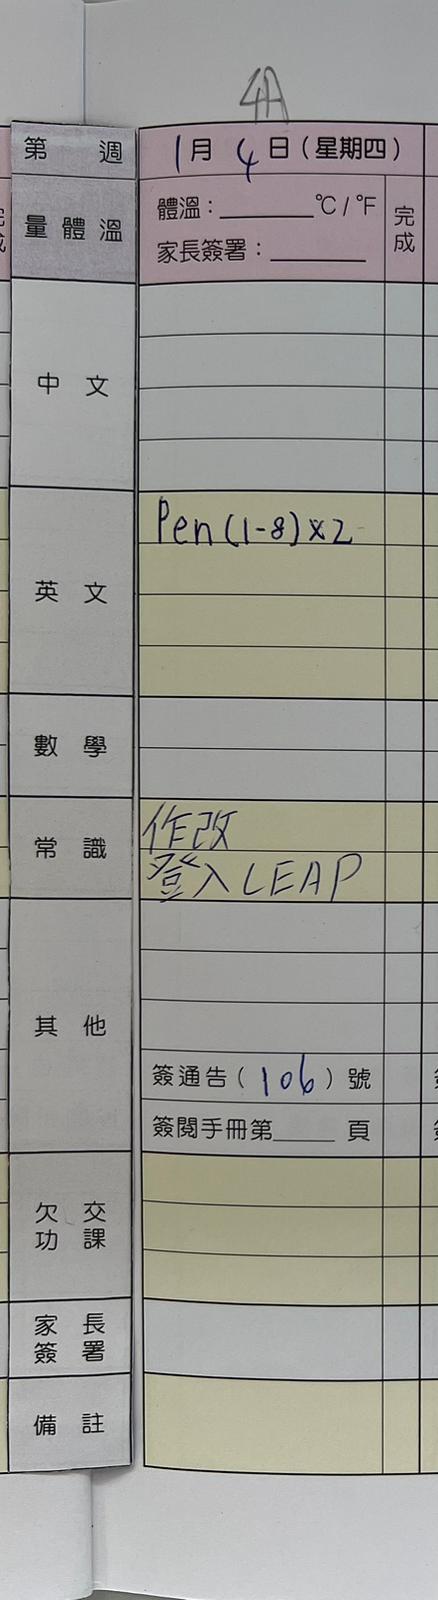 4A
第 週 1月4日(星期四)
量體溫 體溫：______°C/°F 完成
家長簽署：______
中文
英文 Pen(1-8)×2
數學
常識 作改
登入LEAP
其他
簽通告(106)號
簽閱手冊第____頁
欠交功課
家長簽署
備註